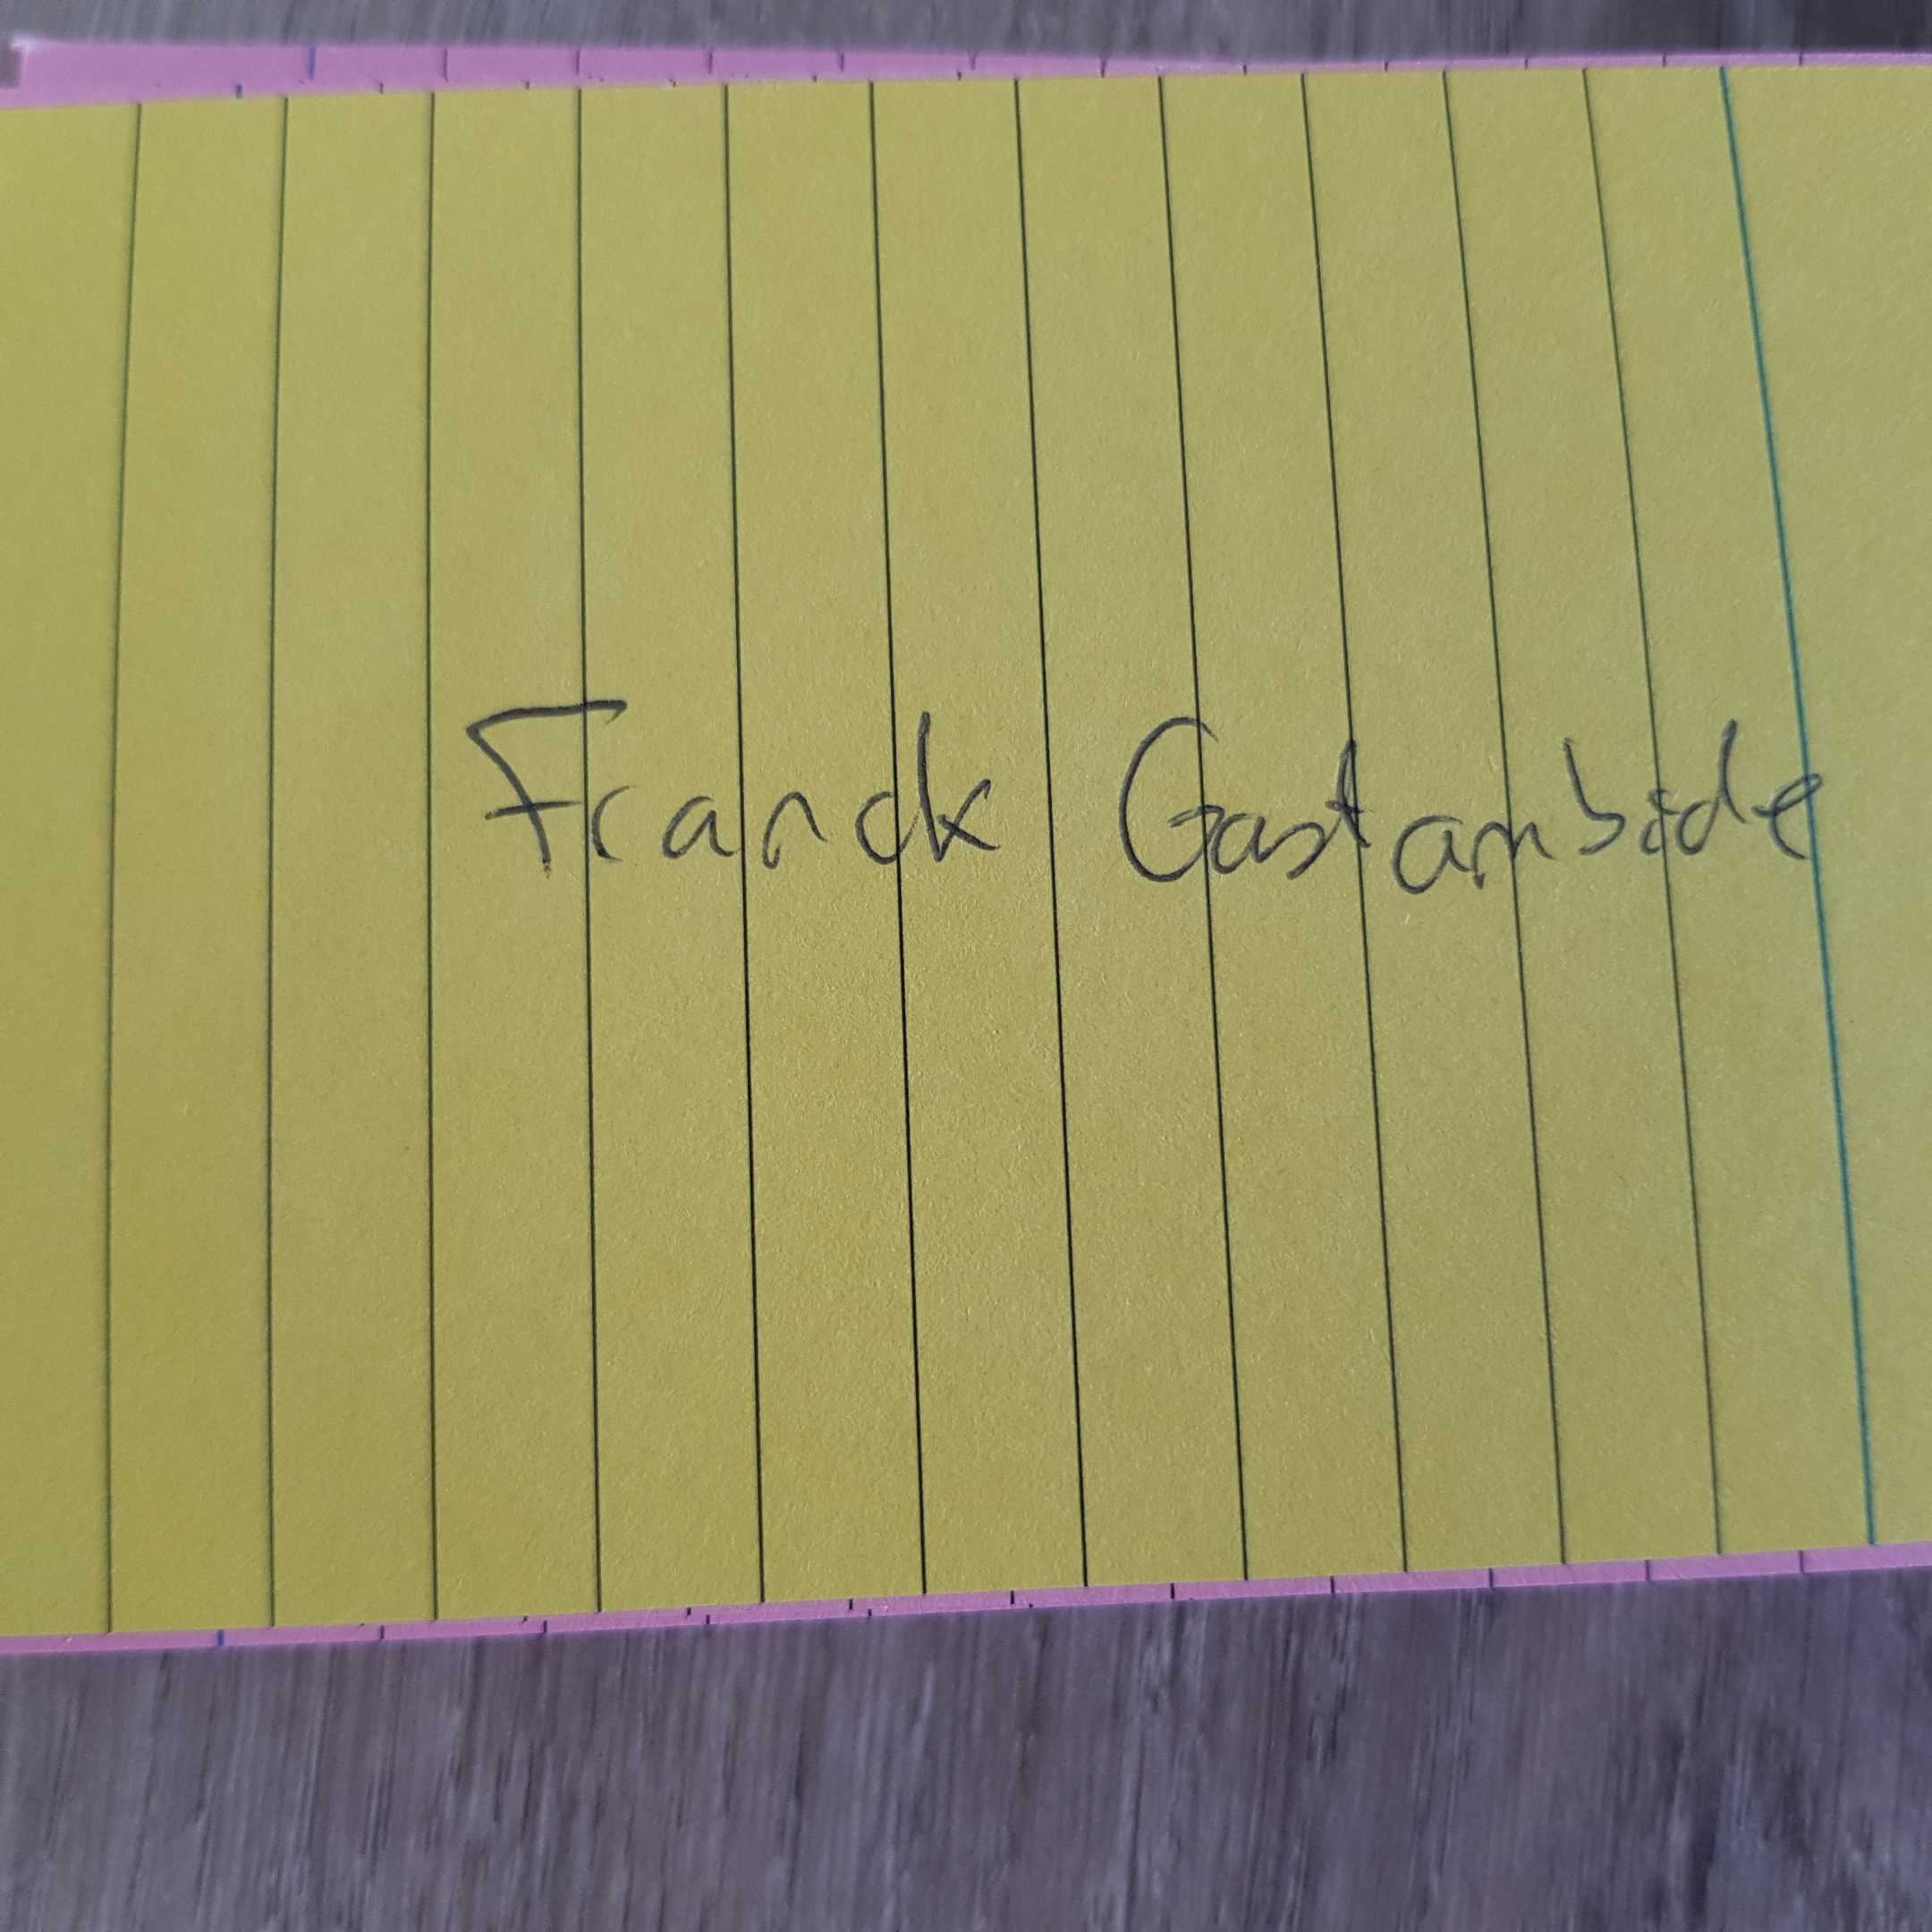 Franck Gastambide